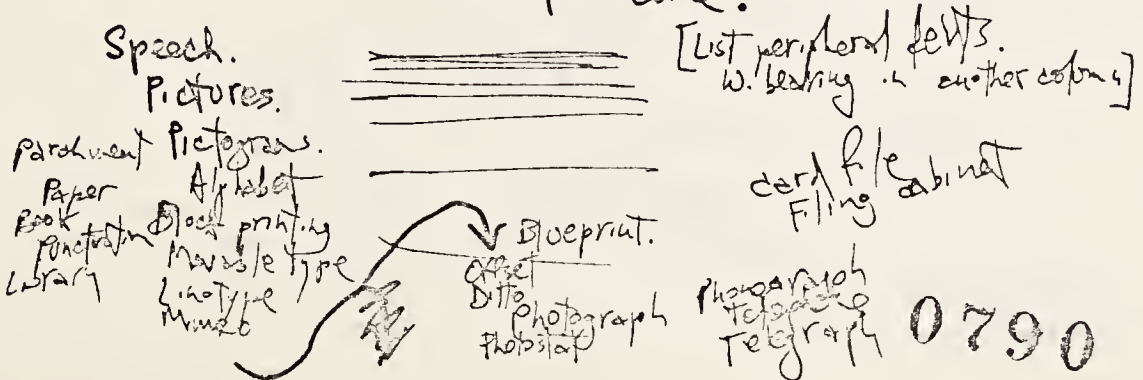 Speech.
Pictures.
Pictograms.
Alphabet
Block printing
Movable Type
Linotype
Mimeo
Parchment
Paper
Book
Punctuation
Library
Blueprint.
Offset
Ditto
Photograph
Photostat
[List peripheral
W. bearing in another column]
card file
Filing cabinet
Phonograph
Telegraph
0790